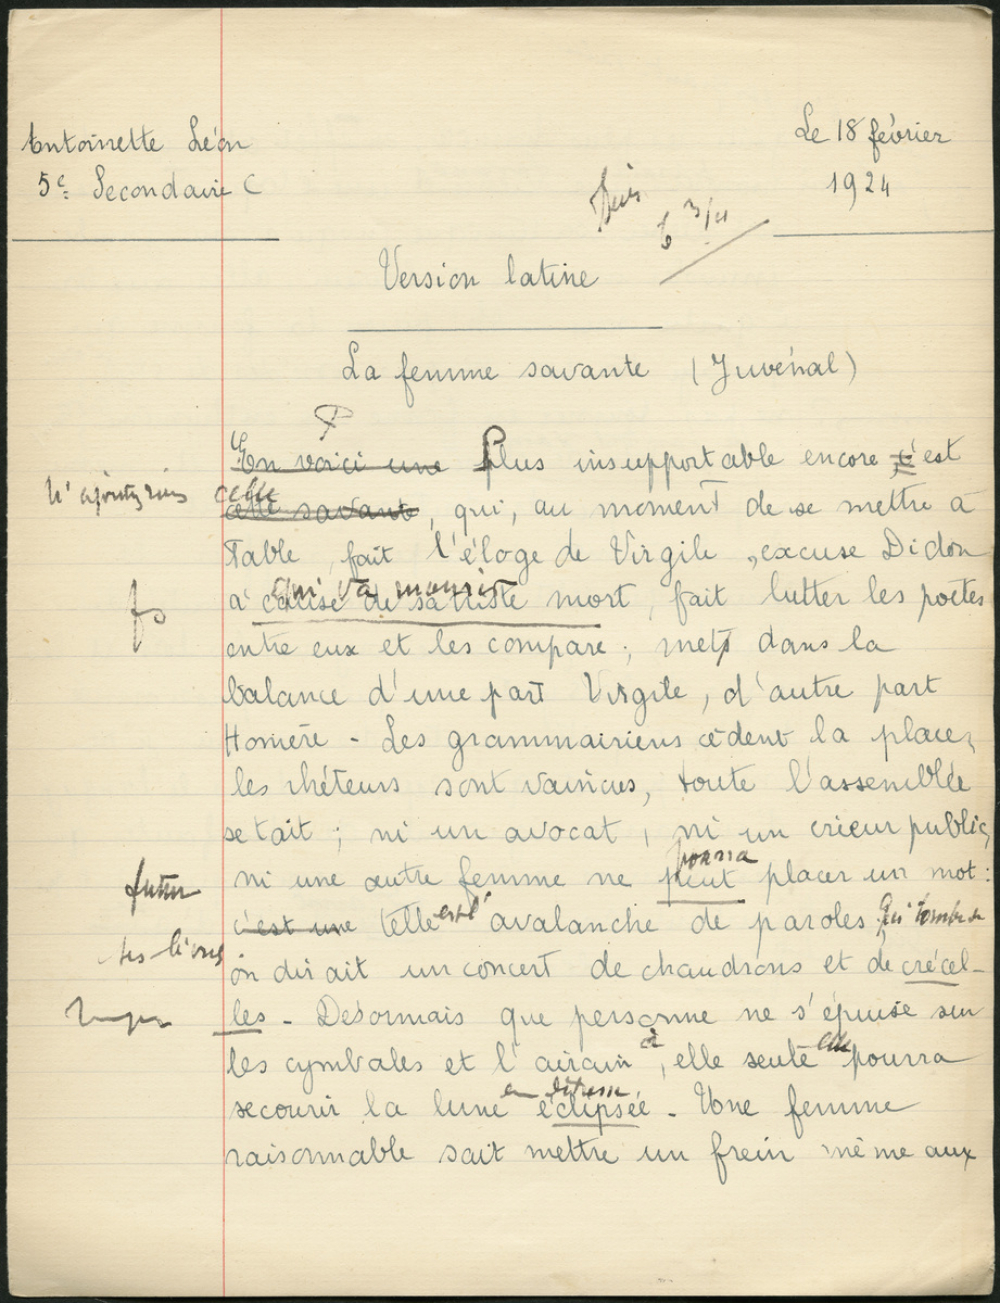 Antoinette Léon
5e Secondaire C
Le 18 février
1924
6 3/4
Version latine
La femme savante (Juvénal)
En voici une Plus insupportable encore c'est
N'ajoutez rien
celle
cette savante, qui, au moment de se mettre à
table, fait l'éloge de Virgile, excuse Didon
qui va mourir
à cause de sa triste mort, fait lutter les poètes
fs
entre eux et les compare; mets dans la
balance d'une part Virgile, d'autre part
Homère - Les grammairiens cèdent la place,
les rhéteurs sont vaincus, toute l'assemblée
se tait; ni un avocat, ni un crieur public,
pourra
futur
ni une autre femme ne peut placer un mot:
c'est une telle est l'avalanche de paroles qui tombe
on dirait un concert de chaudrons et de crécel-
les - Désormais que personne ne s'épuise sur
les cymbales et l'airain, elle seule elle pourra
en détresse
secourir la lune éclipsée - Une femme
raisonnable sait mettre un frein même aux